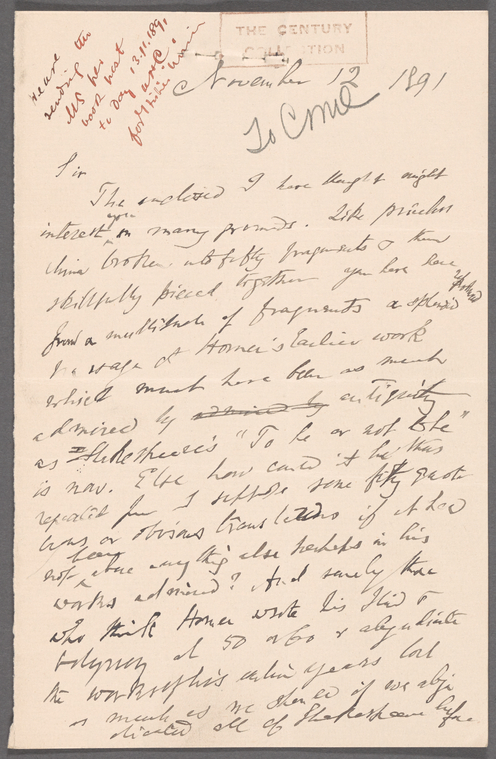 THE CENTURY
COLLECTION
He are
sending the
MS per
book post
to day 13.11.1891
November 12 1891
To Come
Sir
The enclosed I have thought might
interest you on many grounds. Like priceless
china broken into fifty fragments & then
skillfully pieced together you have here
from a multitude of fragments a splendid
passage of Homer's Earlier work
which must have been as much
admired by admired by antiquity
as Shakespeare's "To be or not to be"
is now. Else how could it be thus
repeated in I suppose some fifty quota
tions or obvious translations if it had
not been above anything else perhaps in his
works admired? And surely those
who think Homer wrote his Iliad &
Odyssey at 50 or 60 & abjudicate
the works of his earlier years lose
as much as we should if we abju
dicated all of Shakespeare before